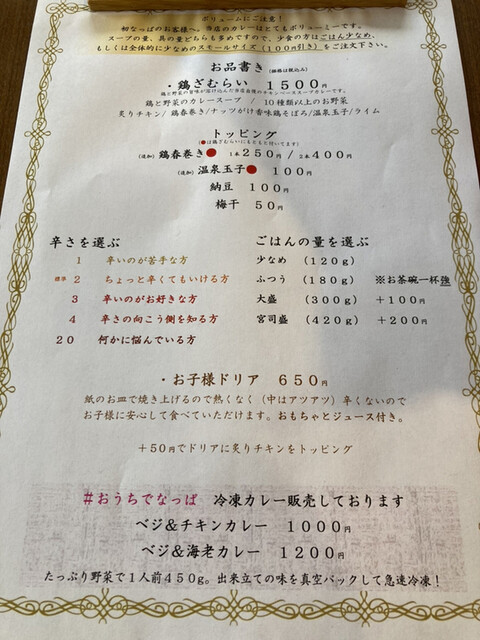 ボリュームにご注意！
初なっぱのお客様へ。当店のカレーはとてもボリューミーです。
スープの量、具の量どちらも多めですので、少食の方はごはん少なめ、
もしくは全体的に少なめのスモールサイズ（100円引き）をご注文下さい。
お品書き（価格は税込み）
・鶏ざむらい 1500円
鶏と野菜の旨味が溶け込んだ当店自慢のチキンベーススープカレーです。
鶏と野菜のカレースープ / 10種類以上のお野菜
炙りチキン/鶏春巻き/ナッツがけ香味鶏そぼろ/温泉玉子/ライム
トッピング
（●は鶏ざむらいにもともと付いてます）
（追加）鶏春巻き● 1本250円/2本400円
（追加）温泉玉子● 100円
納豆 100円
梅干 50円
辛さを選ぶ
1 辛いのが苦手な方
標準 2 ちょっと辛くてもいける方
3 辛いのがお好きな方
4 辛さの向こう側を知る方
20 何かに悩んでいる方
ごはんの量を選ぶ
少なめ （120g）
ふつう （180g） ※お茶碗一杯強
大盛 （300g） ＋100円
宮司盛 （420g） ＋200円
・お子様ドリア 650円
紙のお皿で焼き上げるので熱くなく（中はアツアツ）辛くないので
お子様に安心して食べていただけます。おもちゃとジュース付き。
＋50円でドリアに炙りチキンをトッピング
#おうちでなっぱ 冷凍カレー販売しております
ベジ＆チキンカレー 1000円
ベジ＆海老カレー 1200円
たっぷり野菜で1人前450g。出来立ての味を真空パックして急速冷凍！